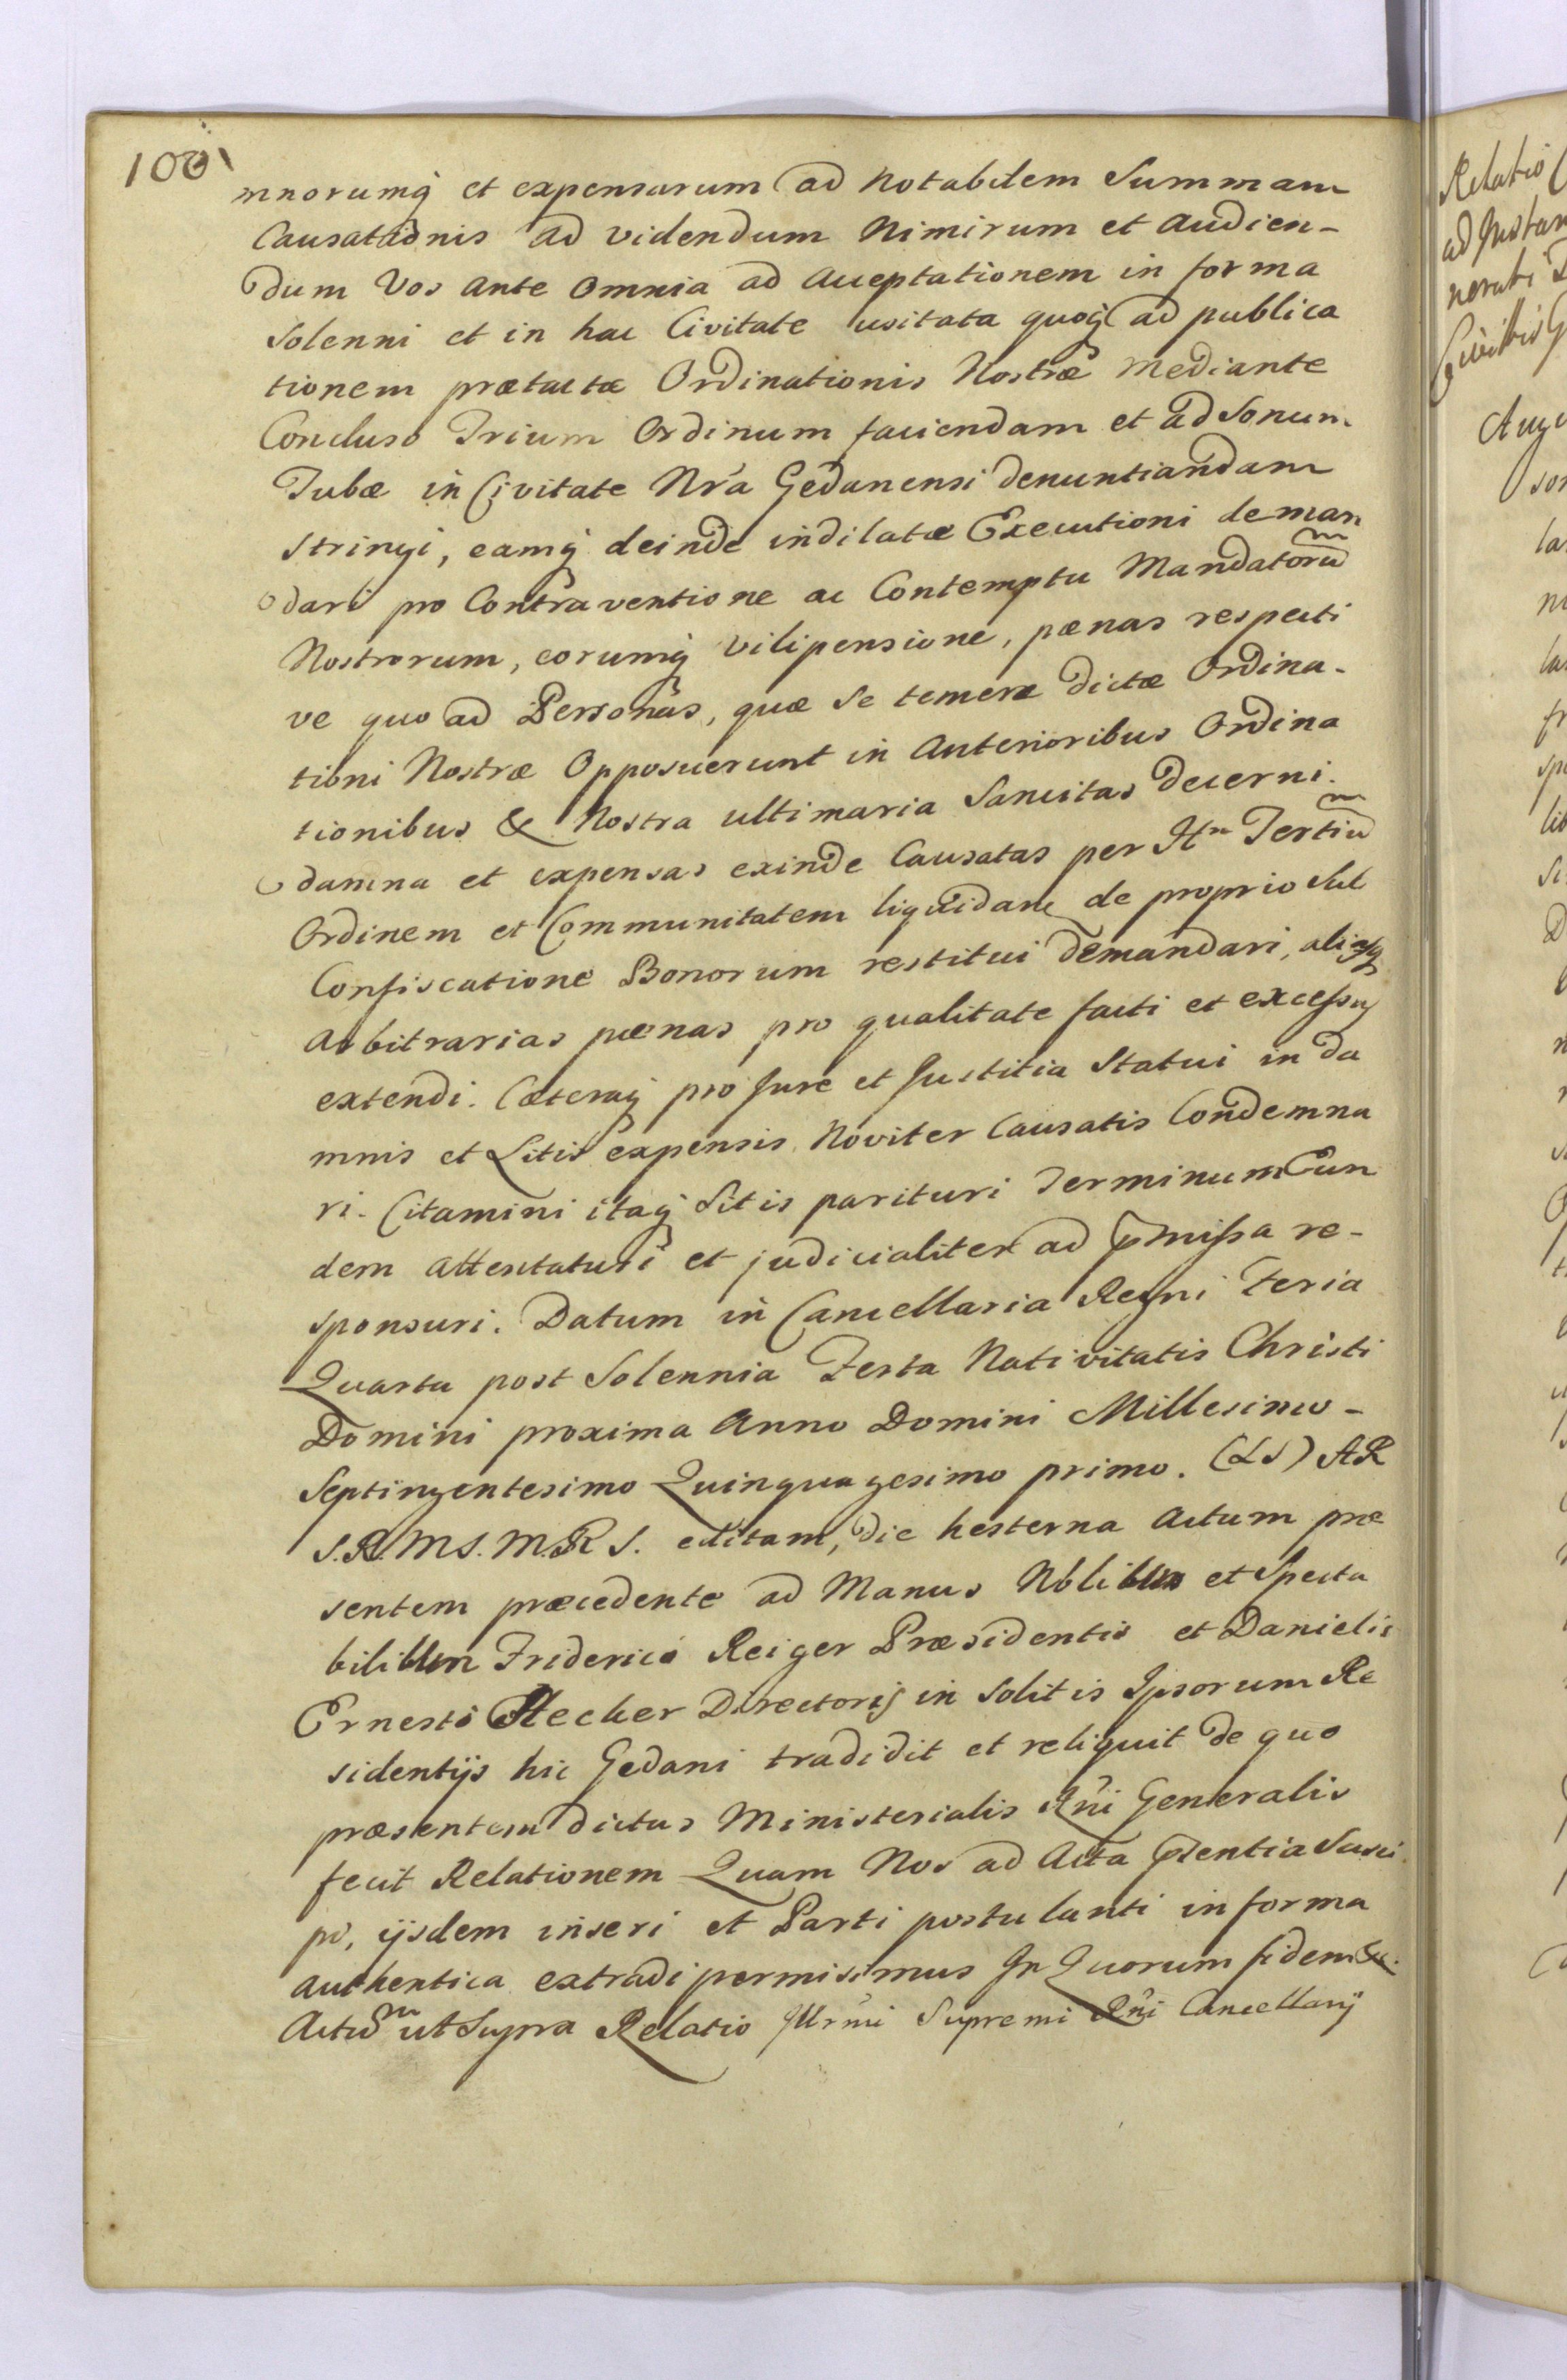 100
mnorumq et expensarum ad notabilem Summam
Causationis ad videndum Nimirum et Audien-
dum Vos Ante Omnia ad Acceptationem in forma
Solenni et in hac Civitate usitata quoq ad publica
tionem prætactæ Ordinationis Nostræ mediante
Concluso Trium Ordinum faciendam et ad Sonum
Tubæ in Civitate Nra Gedanensi denuntiandam
stringi, eamq deinde indilatæ Executioni deman
dari pro Contraventione ac Contemptu Mandatorū
Nostrorum, eorumq vilipensione, pœnas respecti
ve quo ad Personas, quæ se temere dictæ Ordina-
tioni Nostræ Opposuerunt in Anterioribus Ordina
tionibus & Nostra ultimaria Sancitas decerni.
damna et expensas exinde Causatas per Hn Tertiū
Ordinem et Communitatem liquidan de proprio sub
Confiscatione Bonorum restitui demandari, aliasq
Arbitrarias pœnas pro qualitate facti et excessus
extendi. Cæteraq pro Jure et Justitia Statui in da
mnis et Litis expensis Noviter Causatis Condemna
ri. Citamini itaq Sitis parituri Terminum Eun
dem attentaturi et judicialiter ad pmissa re-
sponsuri. Datum in Cancellaria Regni Feria
Quarta post Solennia Festa Nativitatis Christi
Domini proxima Anno Domini Millesimo-
Septingentesimo Quinquagesimo primo. (LS) AR
S.R.M S. M.R S. editam, die hesterna Actum præ
sentem præcedente ad Manus Nblium et Specta
bilium Friderici Reiger Præsidentis et Danielis
Ernesti Hecker Directoris in Solitis Ipsorum Re
sidentijs hic Gedani tradidit et reliquit de quo
præsentem dictus Ministerialis Rni Generalis
fecit Relationem Quam Nos ad Acta pœntia Susci
pi, ijsdem inseri et Parti postulanti in forma
authentica extradi permisimus In Quorum fidem &.
Actū ut Supra Relatio Illrmi Supremi Rni Cancellarij
Relatio
ad Instan
nerati
Civitis